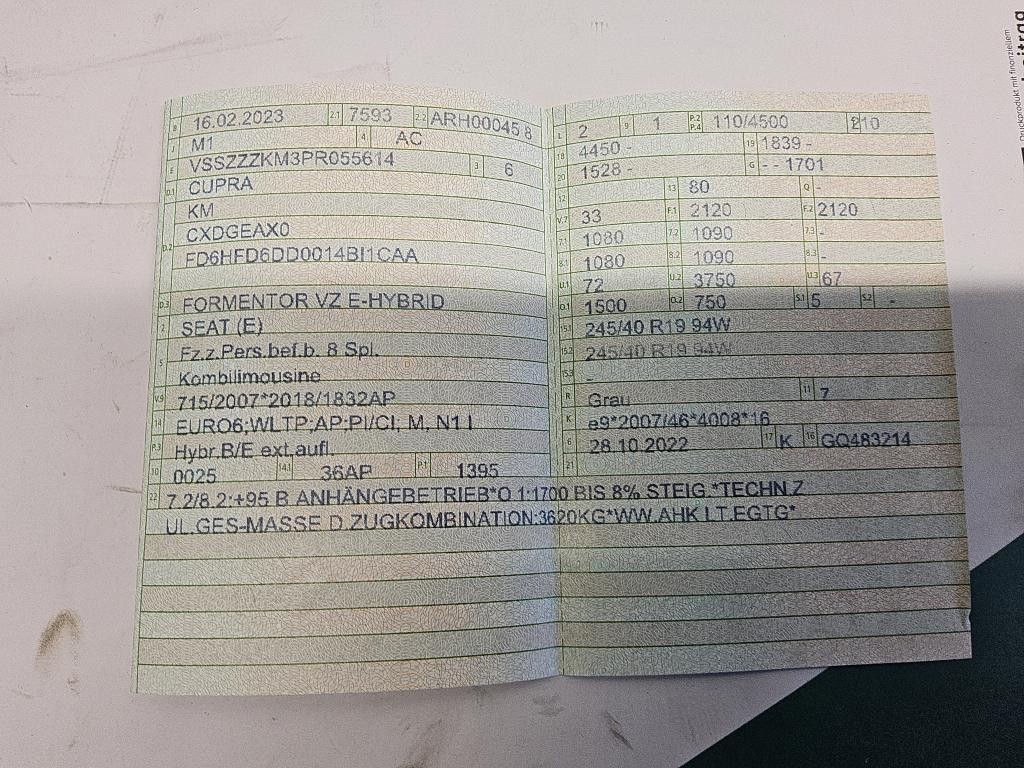 B 16.02.2023 2.1 7593 2.2 ARH00045 8
J M1 4 AC
E VSSZZZKM3PR055614 3 6
D.1 CUPRA
KM
D.2 CXDGEAX0
FD6HFD6DD0014BI1CAA
D.3 FORMENTOR VZ E-HYBRID
2 SEAT (E)
5 Fz.z.Pers.bef.b. 8 Spl.
Kombilimousine
V.9 715/2007*2018/1832AP
14 EURO6;WLTP;AP;PI/CI, M, N1 I
P.3 Hybr.B/E ext.aufl.
10 0025 14.1 36AP P.1 1395
22 7.2/8.2:+95 B.ANHÄNGEBETRIEB*O.1:1700 BIS 8% STEIG.*TECHN.Z
UL.GES-MASSE D.ZUGKOMBINATION:3620KG*WW.AHK LT.EGTG*
L 2 9 1 P.2 P.4 110/4500 210
18 4450 - 19 1839 -
20 1528 - G - - 1701
12 13 80 Q -
V.7 33 F.1 2120 F.2 2120
7.1 1080 7.2 1090 7.3 -
8.1 1080 8.2 1090 8.3 -
U.1 72 U.2 3750 U.3 67
O.1 1500 O.2 750 S.1 5 S.2 -
15.1 245/40 R19 94W
15.2 245/40 R19 94W
15.3 -
R Grau 11 7
K e9*2007/46*4008*16
6 28.10.2022 17 K 16 GQ483214
21
Druckprodukt mit finanziellem